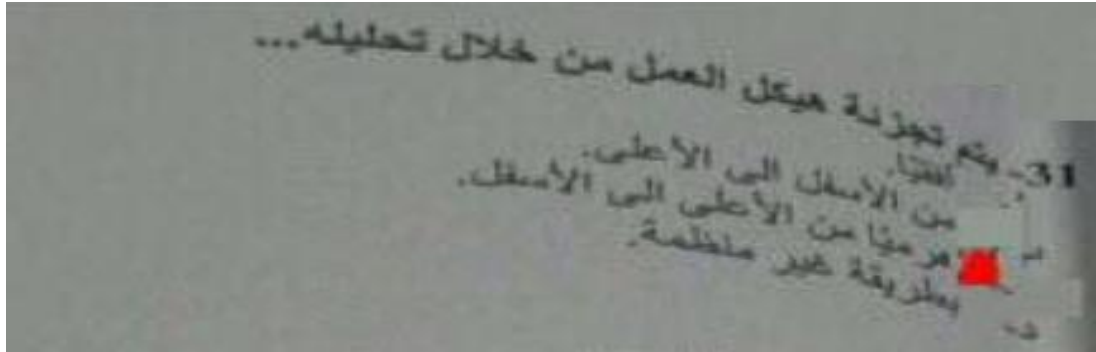 31- يتم تجزئة هيكل العمل من خلال تحليله...
أفقيًا.
من الأسفل الى الأعلى.
هرميًا من الأعلى الى الأسفل.
د- بطريقة غير منظمة.